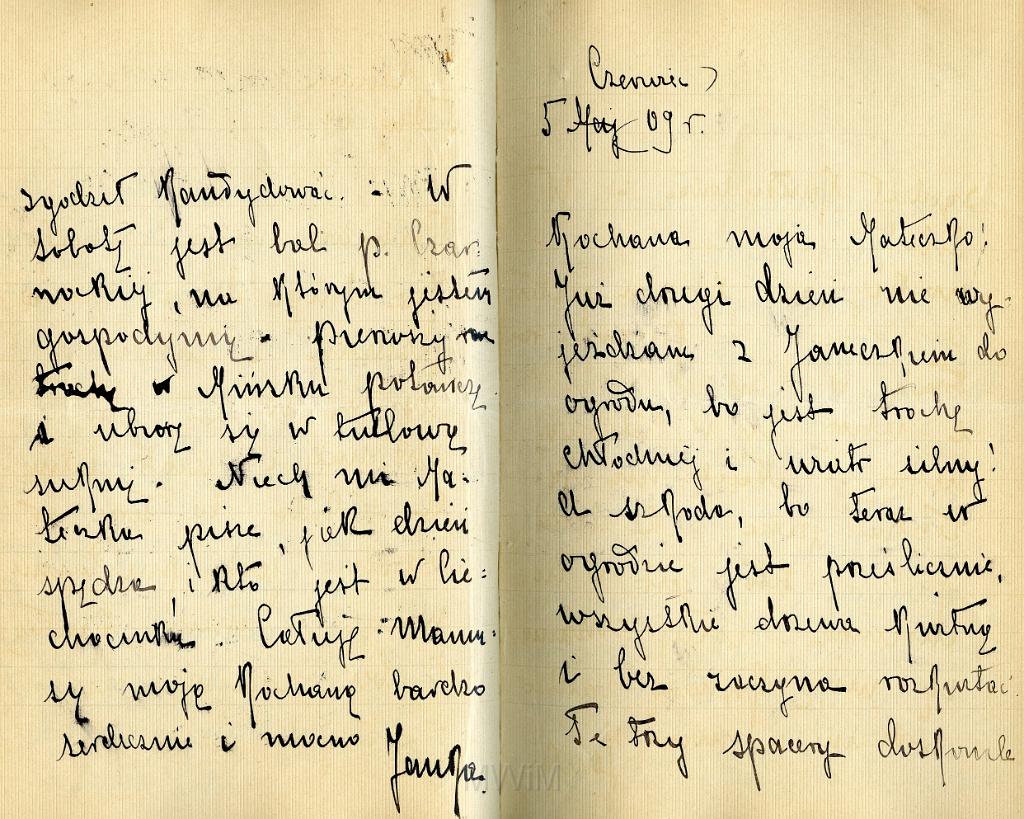 zgodził kandydować. - W
sobotę jest bal p. Czar-
nockiej, na którym jestem
gospodynią. Pierwszy raz
trochę w Mińsku potańczę
i ubiorę się w tiulową
suknię. Niech mi Ma-
teczka pisze, jak dzień
spędza, i kto jest w Cie-
chocinku. Całuję Mamu-
się moją kochaną bardzo
serdecznie i mocno
Janka.
Czerwiec
5 Maj 09 r.
Kochana moja Mateczko!
Już drugi dzień nie wy-
jeżdżam z Janeczkiem do
ogrodu, bo jest trochę
chłodniej i wiatr silny!
A szkoda, bo teraz w
ogrodzie jest prześlicznie,
wszystkie drzewa kwitną
i bez zaczyna rozkwitać.
Te trzy spacery doskonale
MWiM